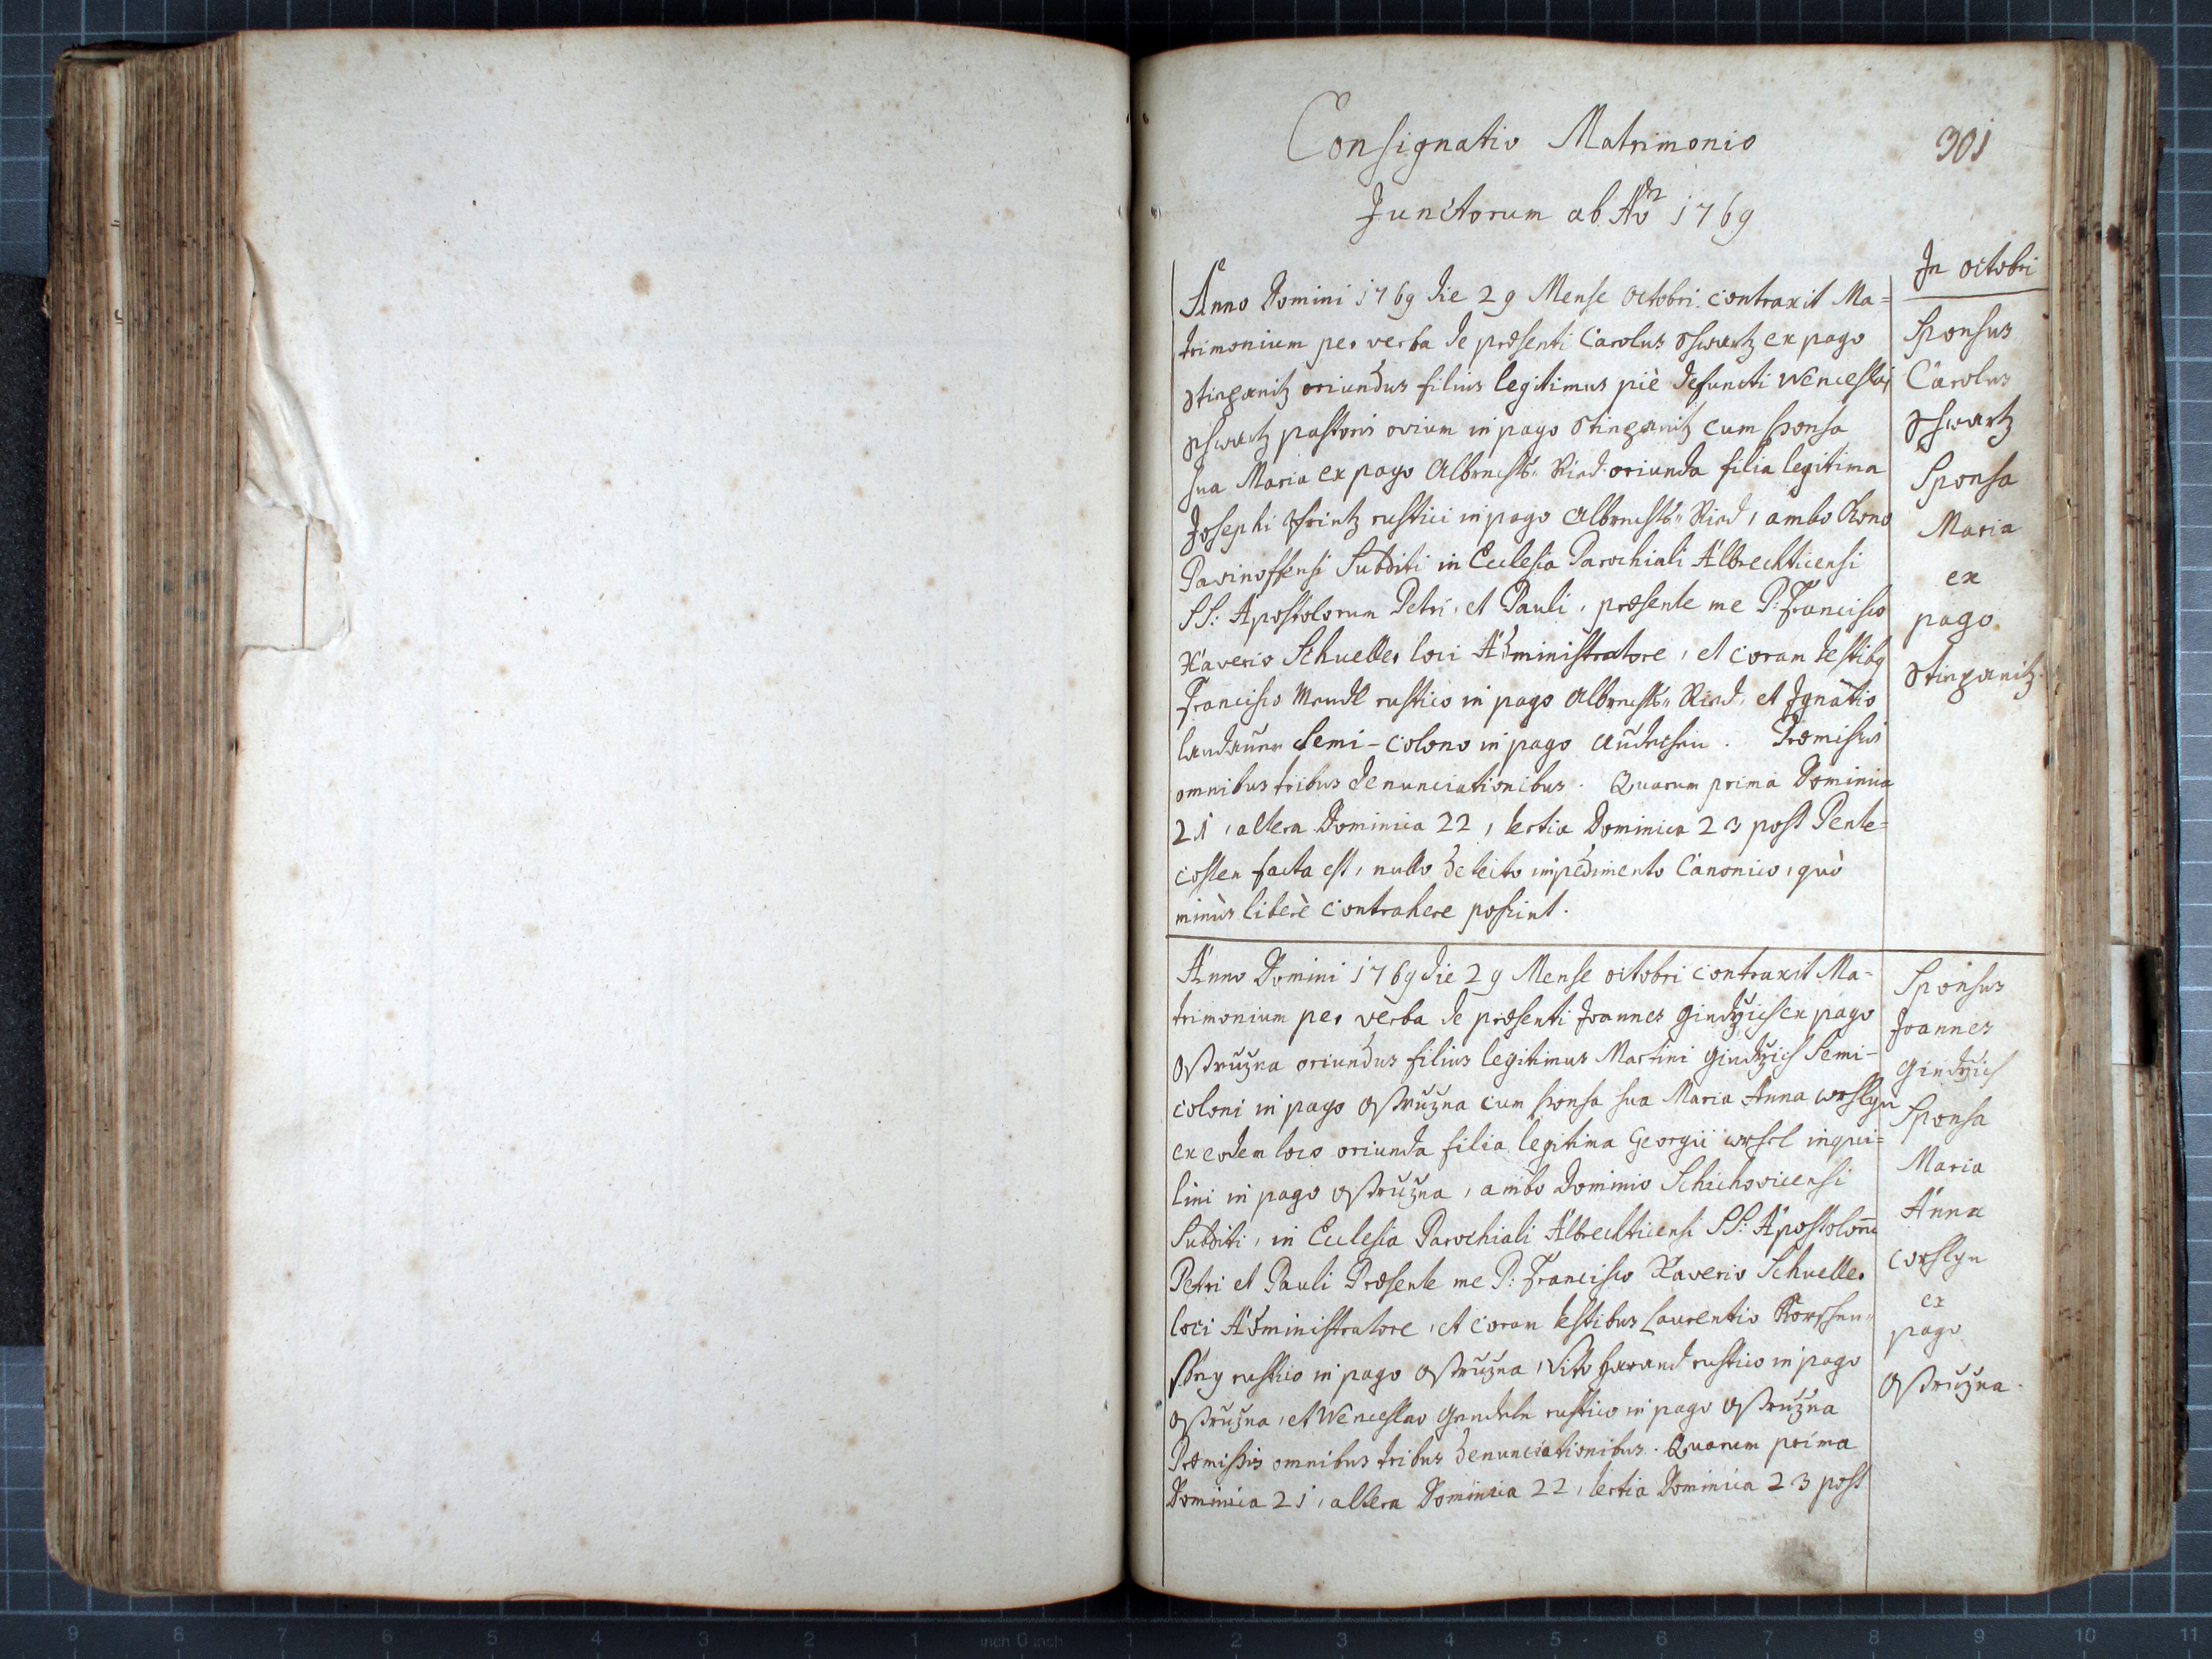 Consignatio Matrimonio
301
Junctorum ab Aõ 1769
In octobri
Anno Domini 1769 die 29 Mense octobri contraxit Ma=
trimonium per verba de præsenti Carolus Schwartz ex pago
oriundus filius legitimus piè defuncti Wenceslai
Schwartz pastoris ovium in pago cum sponsa
sua Maria ex pago Albrechts„Ried oriunda filia legitima
Josephi rustici in pago Albrechts„Ried, ambo
Subditi in Ecclesia Parochiali Albrechticensi
SS: Apostolorum Petri, et Pauli, præsente me P: Francisco
Xaverio Schueller loci Administratore, et coram testibq
Francisco rustico in pago Albrechts„Ried, et Ignatio
Landauer Semi-colono in pago. Præmissis
omnibus tribus denunciationibus. Quarum prima Dominica
21, altera Dominica 22, tertia Dominica 23 post Pente=
costen facta est, nullo detecto impedimento Canonico, quò
minùs liberè contrahere possint.
Sponsus
Carolus
Schwartz
Sponsa
Maria
ex
pago
Anno Domini 1769 die 29 Mense octobri contraxit Ma-
trimonium per verba de præsenti Joannes Gindržich ex pago
Ostružna oriundus filius legitimus Martini Gindržich Semi-
coloni in pago Ostružna cum sponsa sua Maria Anna
ex eodem loco oriunda filia legitima Georgii inqui=
lini in pago Ostružna, ambo Dominio Schichovicensi
Subditi, in Ecclesia Parochiali Albrechticensi SS: Apostolorũ
Petri et Pauli Præsente me P: Francisco Xaverio Schueller
loci Administratore, et coram testibus Laurentio
rustico in pago Ostružna, Vito rustico in pago
Ostružna, et Wenceslao rustico in pago Ostružna
Præmissis omnibus tribus denunciationibus. Quarum prima
Dominica 21, altera Dominica 22, tertia Dominica 23 post
Sponsus
Joannes
Gindržich
Sponsa
Maria
Anna
ex
pago
Ostružna.